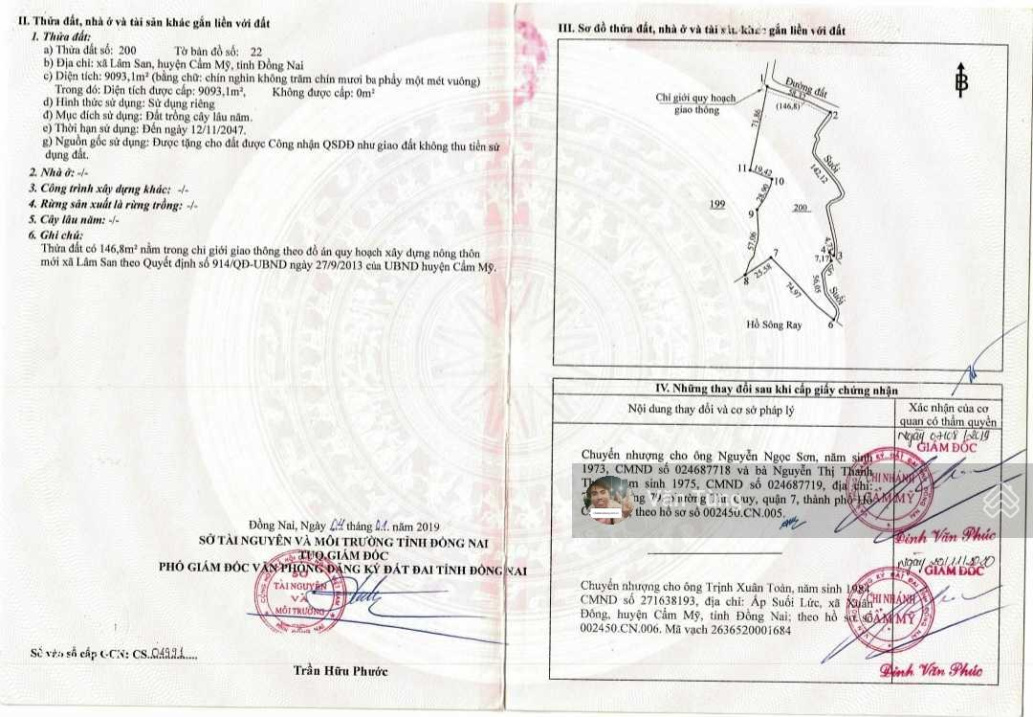 II. Thửa đất, nhà ở và tài sản khác gắn liền với đất
1. Thửa đất:
a) Thửa đất số: 200 Tờ bản đồ số: 22
b) Địa chỉ: xã Lâm San, huyện Cẩm Mỹ, tỉnh Đồng Nai
c) Diện tích: 9093,1m² (bằng chữ: chín nghìn không trăm chín mươi ba phẩy một mét vuông)
Trong đó: Diện tích được cấp: 9093,1m², Không được cấp: 0m²
d) Hình thức sử dụng: Sử dụng riêng
đ) Mục đích sử dụng: Đất trồng cây lâu năm.
e) Thời hạn sử dụng: Đến ngày 12/11/2047.
g) Nguồn gốc sử dụng: Được tặng cho đất được Công nhận QSDĐ như giao đất không thu tiền sử
dụng đất.
2. Nhà ở: -/-
3. Công trình xây dựng khác: -/-
4. Rừng sản xuất là rừng trồng: -/-
5. Cây lâu năm: -/-
6. Ghi chú:
Thửa đất có 146,8m² nằm trong chỉ giới giao thông theo đồ án quy hoạch xây dựng nông thôn
mới xã Lâm San theo Quyết định số 914/QĐ-UBND ngày 27/9/2013 của UBND huyện Cẩm Mỹ.
Đồng Nai, Ngày 04 tháng 01 năm 2019
SỞ TÀI NGUYÊN VÀ MÔI TRƯỜNG TỈNH ĐỒNG NAI
TUQ.GIÁM ĐỐC
PHÓ GIÁM ĐỐC VĂN PHÒNG ĐĂNG KÝ ĐẤT ĐAI TỈNH ĐỒNG NAI
SỞ
TÀI NGUYÊN
VÀ
MÔI TRƯỜNG
Số vào sổ cấp GCN: CS
Trần Hữu Phước
III. Sơ đồ thửa đất, nhà ở và tài sản khác gắn liền với đất
B
1
Đường đất
58,33
(146,8)
2
Chỉ giới quy hoạch
giao thông
71,86
Suối
142,12
11
19,42
10
28,90
199
9
200
57,06
7
3
7,17
8
25,58
74,97
56,05
Suối
6
Hồ Sông Ray
IV. Những thay đổi sau khi cấp giấy chứng nhận
Nội dung thay đổi và cơ sở pháp lý
Xác nhận của cơ
quan có thẩm quyền
Chuyển nhượng cho ông Nguyễn Ngọc Sơn, năm sinh
1973, CMND số 024687718 và bà Nguyễn Thị Thanh
sinh 1975, CMND số 024687719, địa chỉ:
quận 7, thành phố Hồ
theo hồ sơ số 002450.CN.005.
GIÁM ĐỐC
CHI NHÁNH
CẨM MỸ
Đinh Văn Phúc
Chuyển nhượng cho ông Trịnh Xuân Toàn, năm sinh
CMND số 271638193, địa chỉ: Ấp Suối Lức, xã Xuân
Đông, huyện Cẩm Mỹ, tỉnh Đồng Nai; theo hồ sơ số
002450.CN.006. Mã vạch 2636520001684
GIÁM ĐỐC
CHI NHÁNH
CẨM MỸ
Đinh Văn Phúc